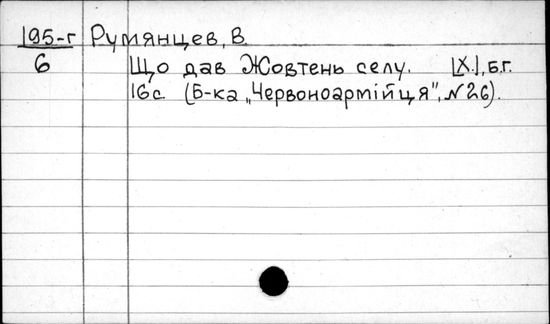 195-г Румянцев, В.
6 Що дав Жовтень селу. [Х.], б.г.
16с. (Б-ка „Червоноармійця", №26).